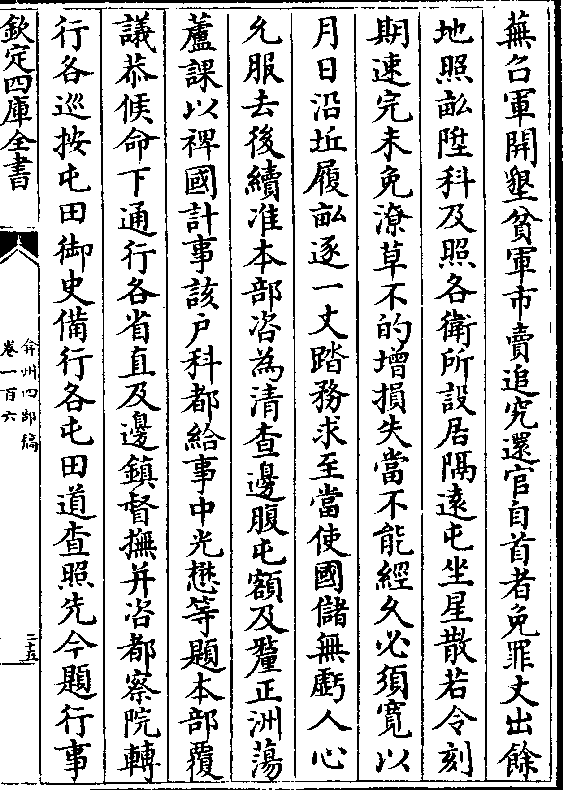 蕪召軍開墾貧軍市賣追究還官自首者免罪丈出餘
地照畝陞科及照各衛所設居隔逺屯坐星散若令刻
期速完未免潦草不的增損失當不能經久必須寛以
月日沿坵履畝逐一丈踏務求至當使國儲無虧人心
允服去後續准本部咨為清查邊腹屯額及釐正洲蕩
蘆課以裨國計事該户科都給事中光懋等題本部覆
議恭候命下通行各省直及邊鎮督撫并咨都察院轉
行各巡按屯田御史備行各屯田道查照先今題行事
欽定四庫全書
弇州四部稿
卷一百六
二十五